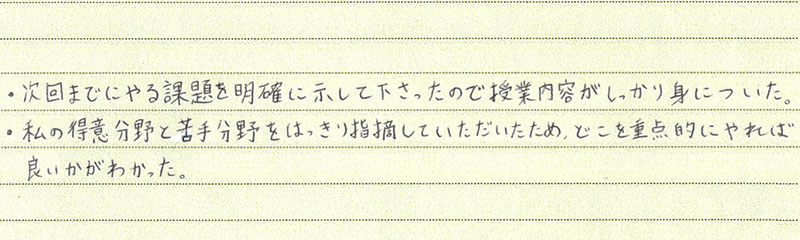 ・次回までにやる課題を明確に示して下さったので授業内容がしっかり身についた。
・私の得意分野と苦手分野をはっきり指摘していただいたため、どこを重点的にやれば
良いかがわかった。